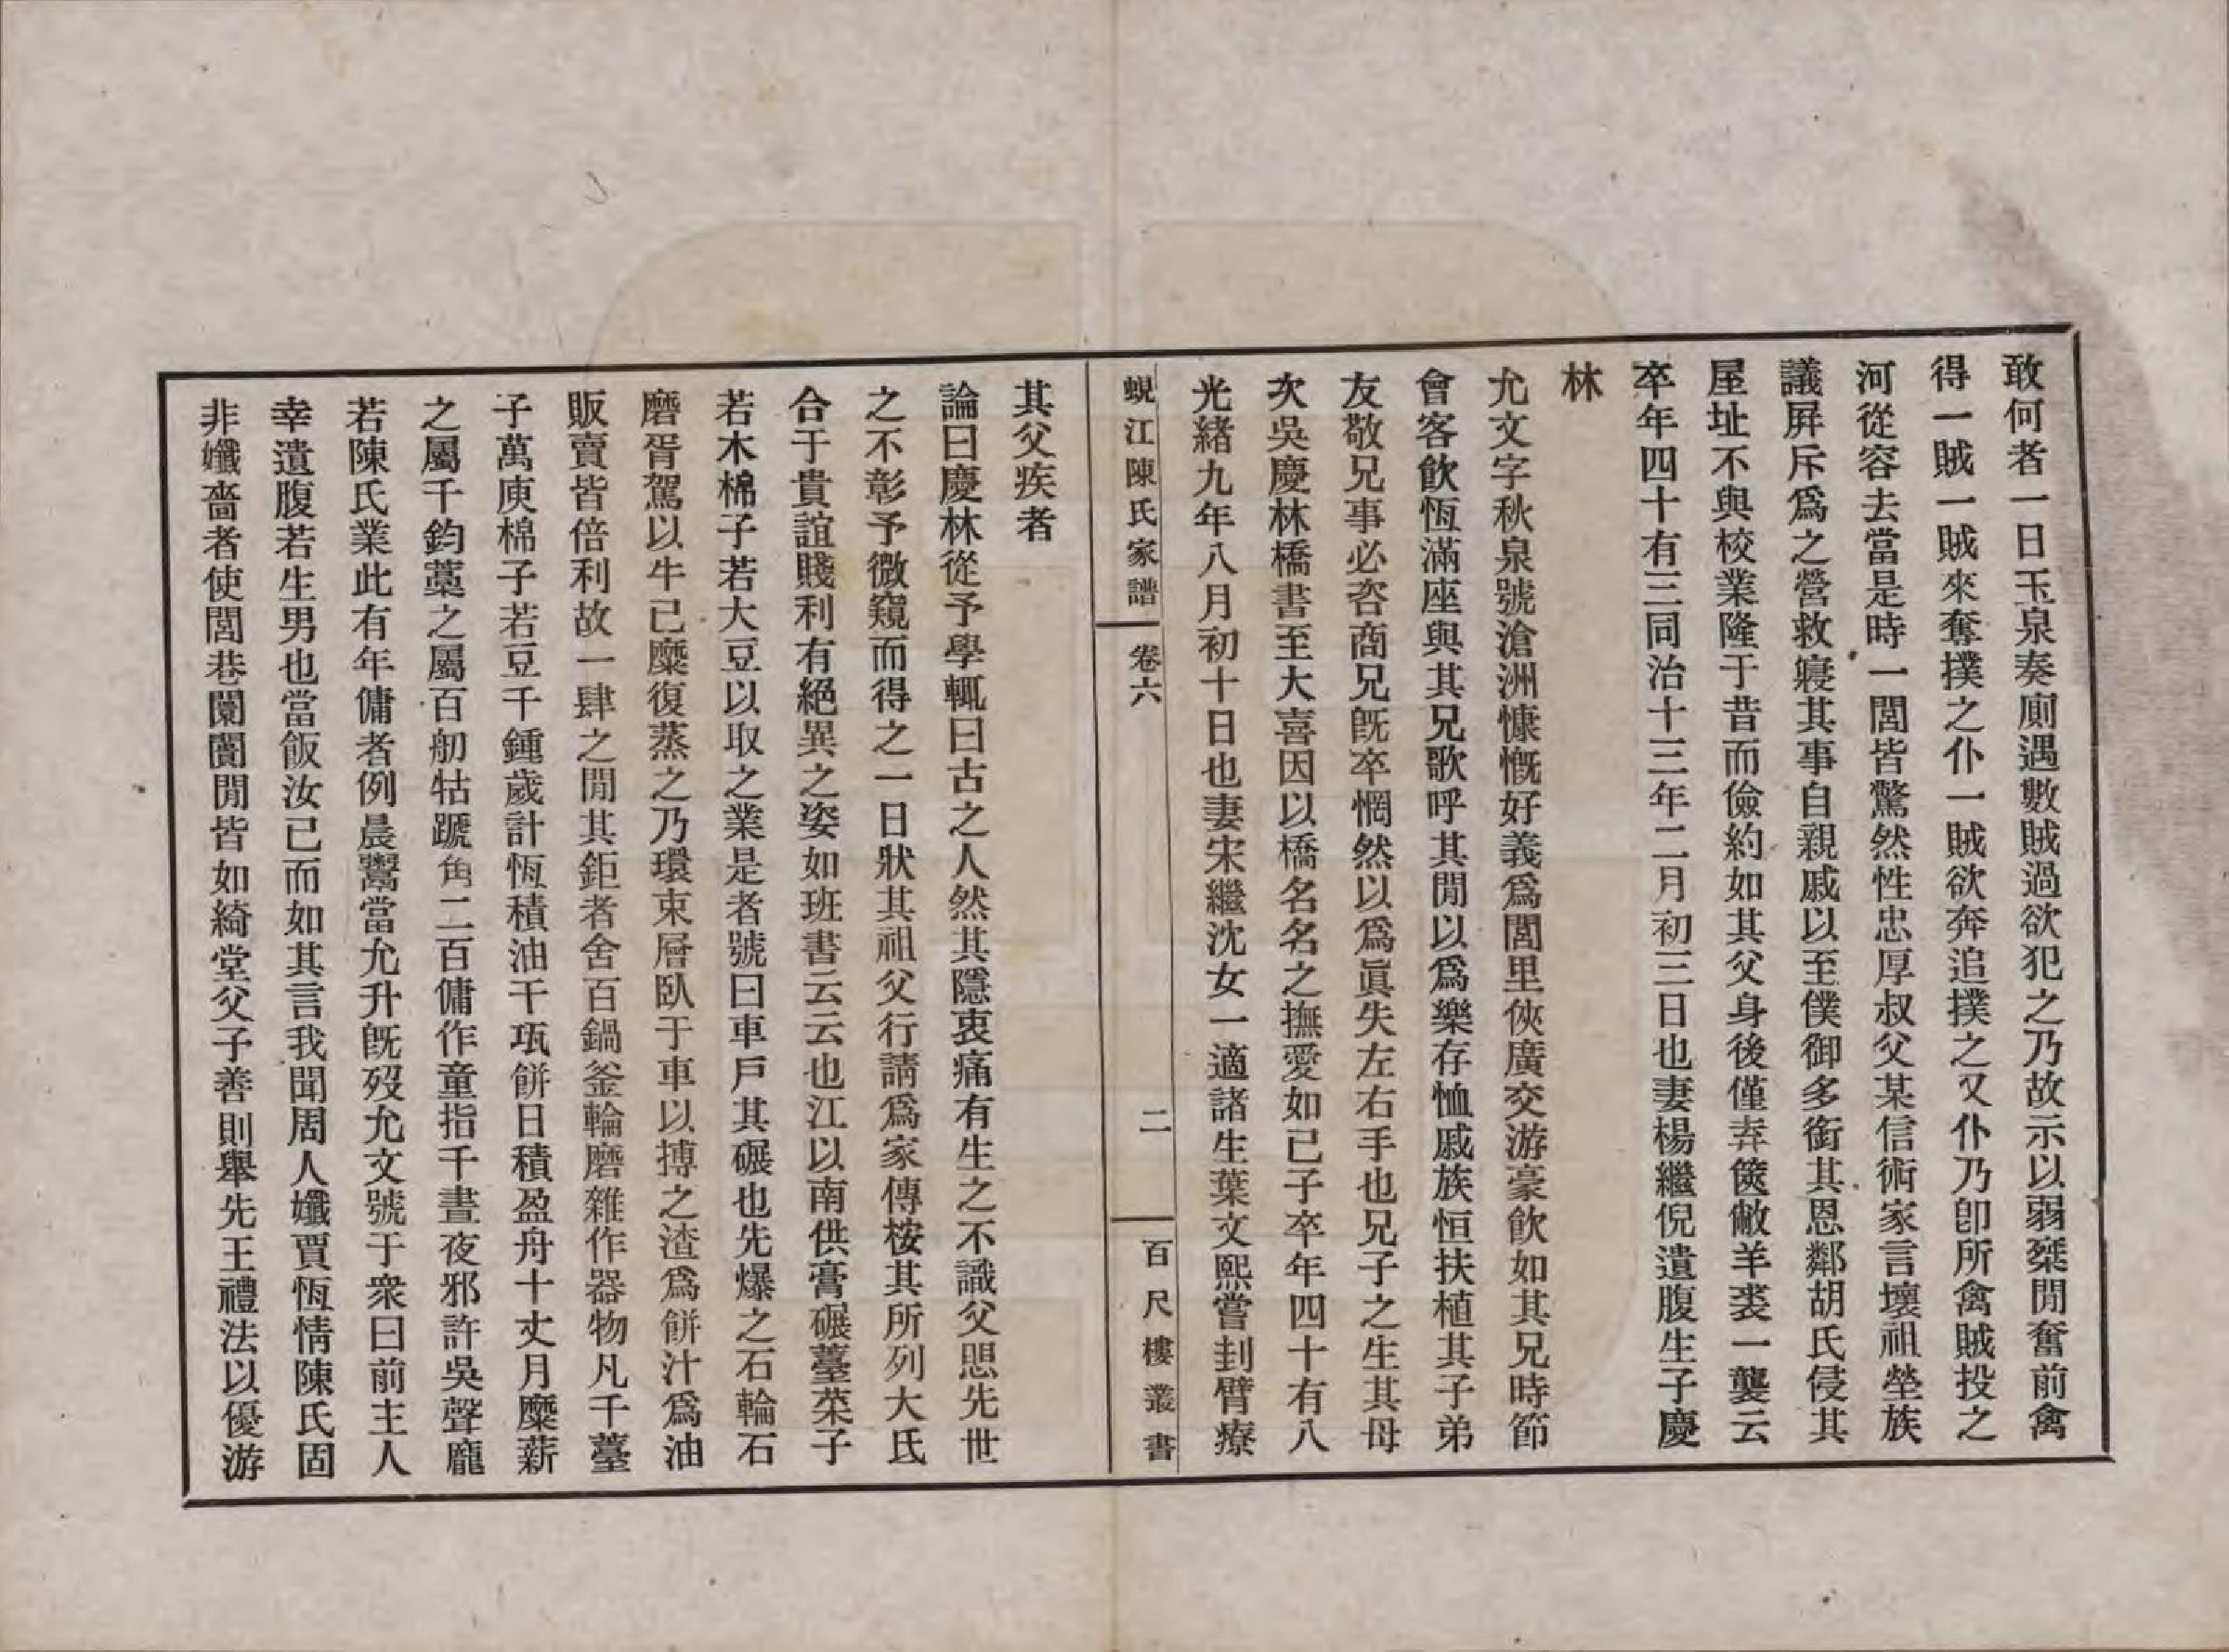 敢何者一日玉泉奏廁遇數賊過欲犯之乃故示以弱椉閒奮前禽
得一賊一賊來奪撲之仆一賊欲奔追撲之又仆乃卽所禽賊投之
河從容去當是時一閭皆驚然性忠厚叔父某信術家言壞祖塋族
議屛斥爲之營救寢其事自親戚以至僕御多銜其恩鄰胡氏侵其
屋址不與校業隆于昔而儉約如其父身後僅弆篋敝羊裘一襲云
卒年四十有三同治十三年二月初三日也妻楊繼倪遺腹生子慶
林
允文字秋泉號滄洲慷慨好義爲閭里俠廣交游豪飮如其兄時節
會客飮恆滿座與其兄歌呼其閒以爲樂存恤戚族恒扶植其子弟
友敬兄事必咨商兄旣卒惘然以爲眞失左右手也兄子之生其母
次吳慶林橋書至大喜因以橋名名之撫愛如己子卒年四十有八
光緒九年八月初十日也妻宋繼沈女一適諸生葉文熙嘗刲臂療
蜆江陳氏家譜 卷六 二 百尺樓叢書
其父疾者
論曰慶林從予學輒曰古之人然其隱衷痛有生之不識父愳先世
之不彰予微窺而得之一日狀其祖父行請爲家傳桉其所列大氐
合于貴誼賤利有絕異之姿如班書云云也江以南供膏碾薹菜子
若木棉子若大豆以取之業是者號曰車戶其碾也先爆之石輪石
磨胥駕以牛已糜復蒸之乃環束層臥于車以搏之渣爲餅汁爲油
販賣皆倍利故一肆之閒其鉅者舍百鍋釜輪磨雜作器物凡千薹
子萬庾棉子若豆千鍾歲計恆積油千瓨餅日積盈舟十丈月糜薪
之屬千鈞藁之屬百舠牯蹏角二百傭作童指千晝夜邪許吳聲龐
若陳氏業此有年傭者例晨鬻當允升旣歿允文號于衆曰前主人
幸遺腹若生男也當飯汝已而如其言我聞周人孅賈恆情陳氏固
非孅嗇者使閭巷闤闠閒皆如綺堂父子善則舉先王禮法以優游